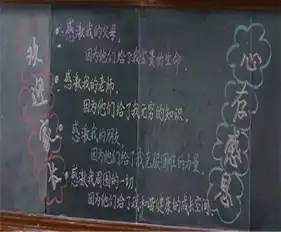 欢迎家长
感激我的父母,
因为他们给了我宝贵的生命.
感激我的老师,
因为他们给了我无穷的知识,
感激我的朋友,
因为他们给了我克服困难的力量,
感激我周围的一切,
因为他们给了我和谐健康的成长空间.
心存感恩